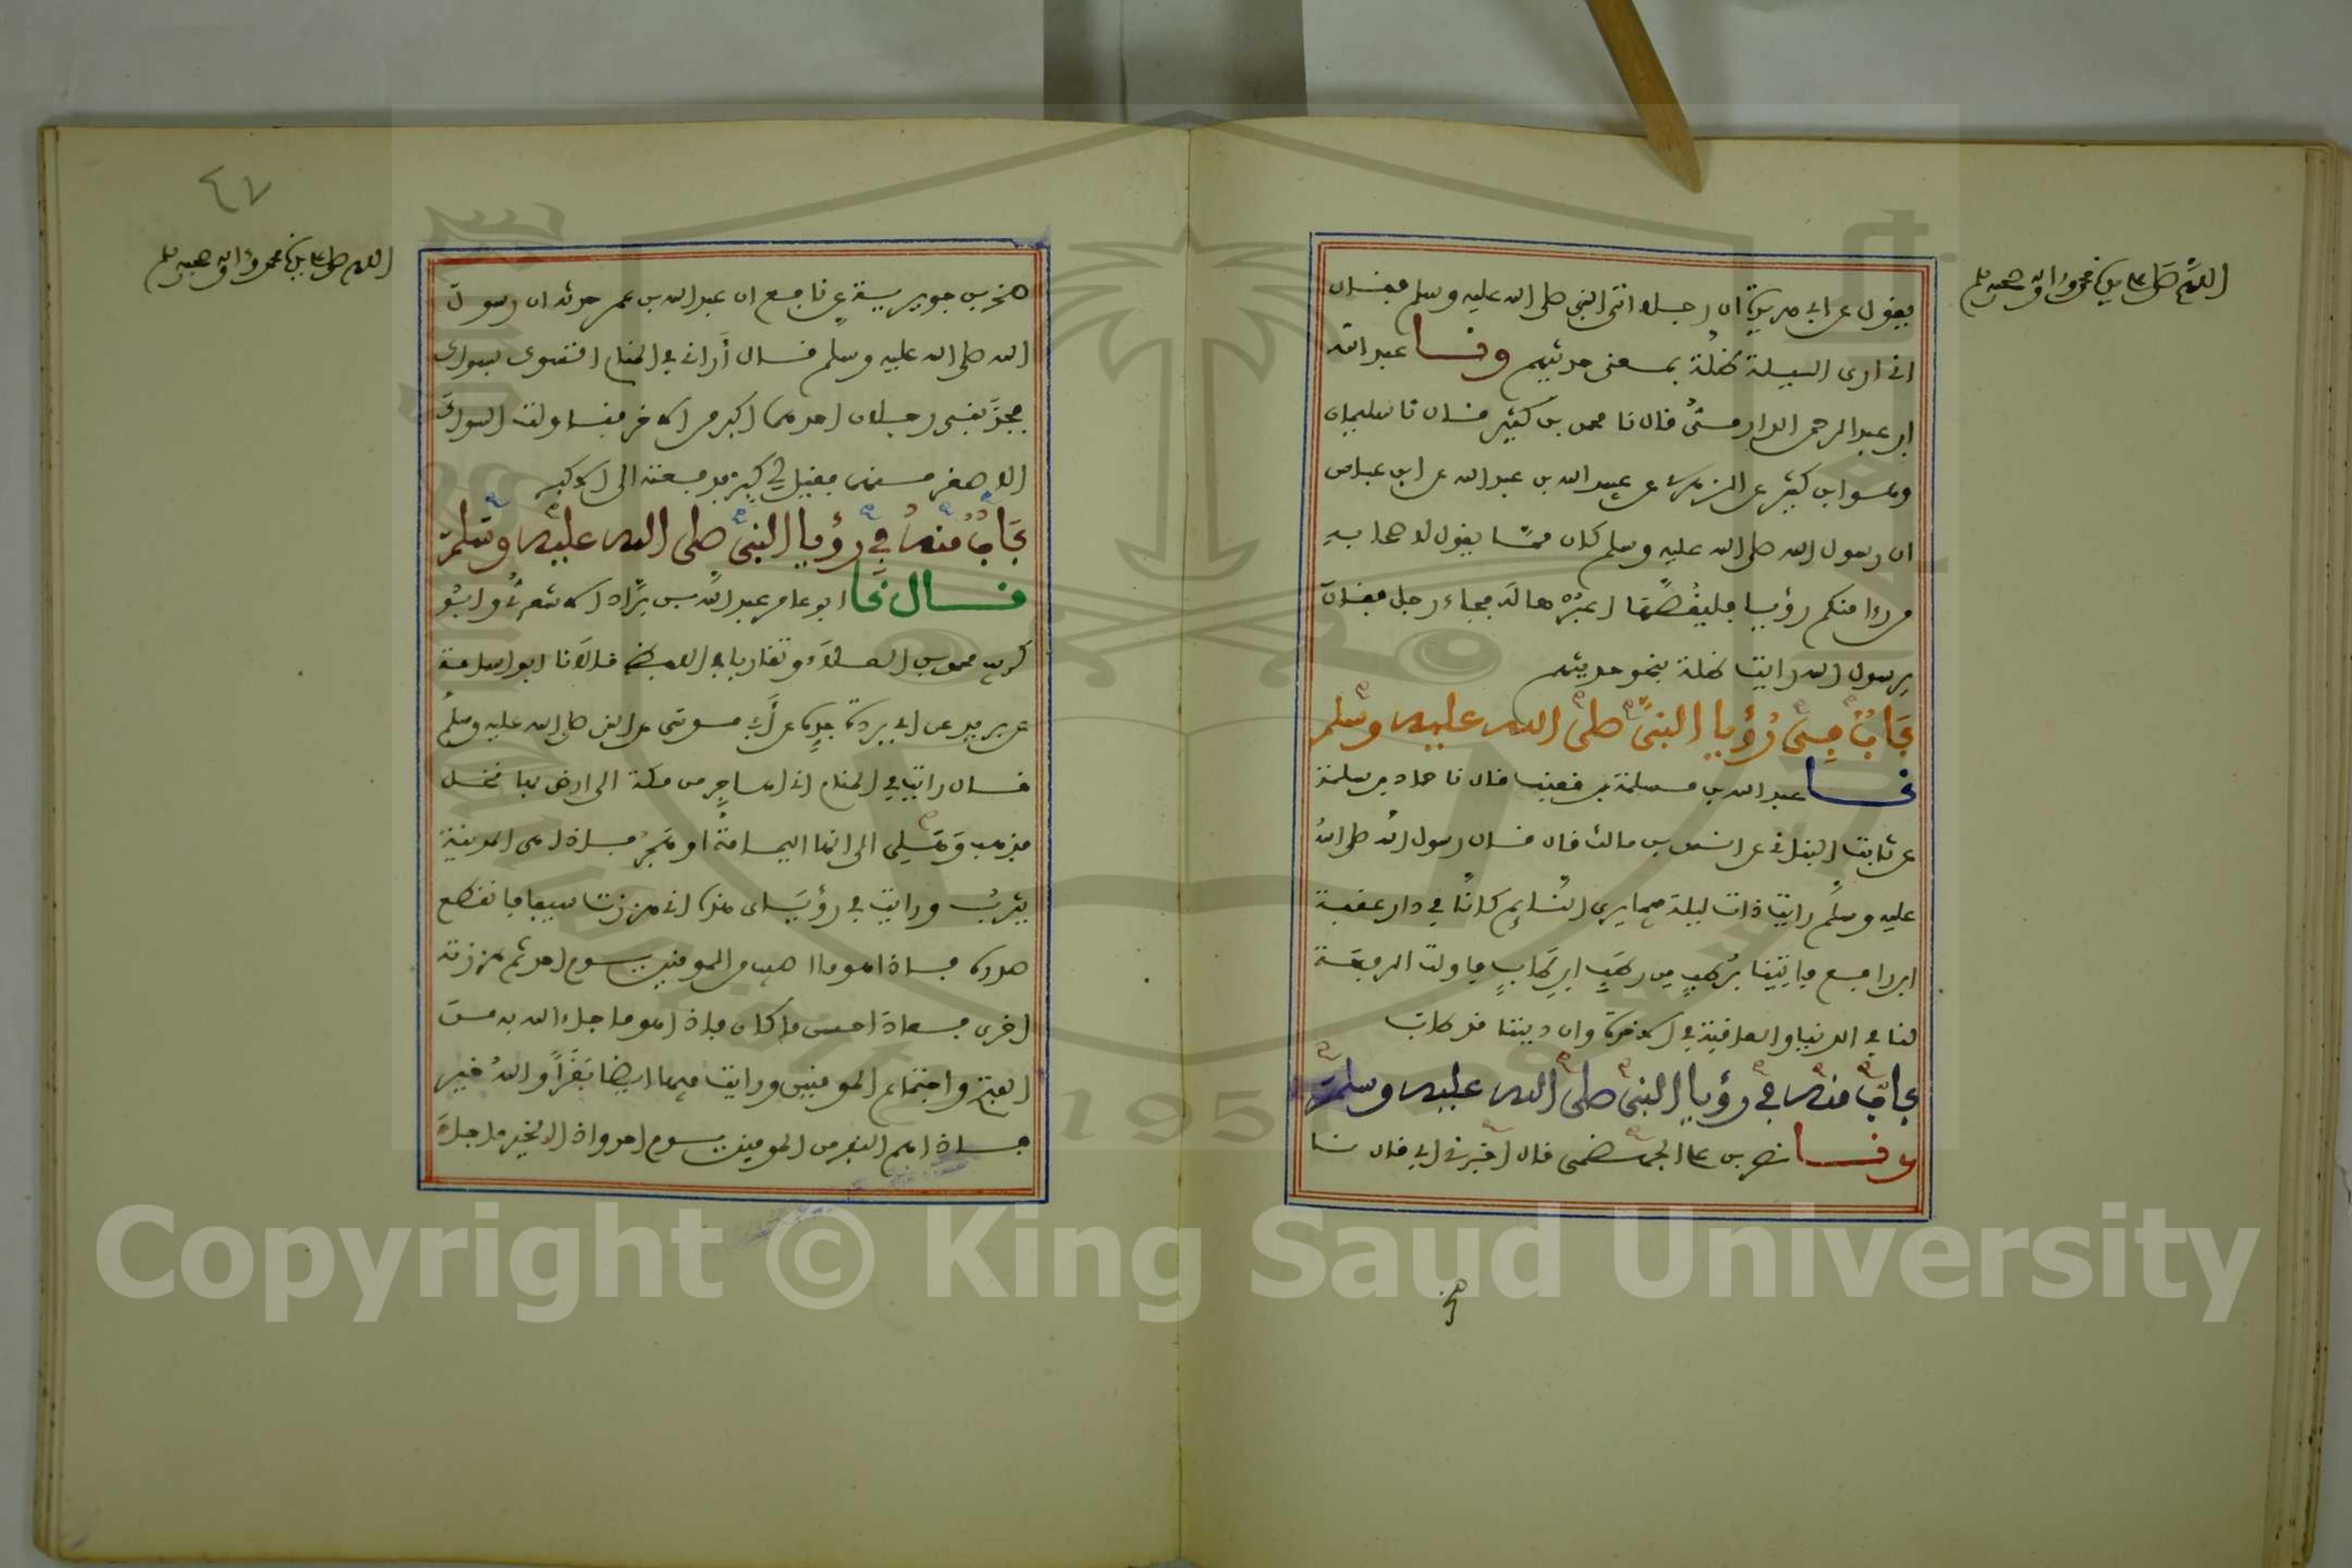 اللهم صل على سيدنا محمد وءاله وصحبه وسلم
يقول عن ابي هريرة ان رجلا اتى النبي صلى الله عليه وسلم فقال
اني ارى الليلة ظلة بمعنى حديثهم ونا عبد الله
ابن عبد الرحمن الدارمي قال نا محمد بن كثير قال نا سليمان
وهو ابن كثير عن الزهري عن عبيد الله بن عبد الله عن ابن عباس
ان رسول الله صلى الله عليه وسلم كان مما يقول لاصحابه
من رءا منكم رؤيا فليقصها اعبرها له فجاء رجل فقال
يرسول الله رايت ظلة بنحو حديثهم
باب في رؤيا النبي صلى الله عليه وسلم
نا عبد الله بن مسلمة بن قعنب قال نا حماد بن سلمة
عن ثابت البناني عن انس بن مالك قال قال رسول الله صلى الله
عليه وسلم رايت ذات ليلة فيما يرى النائم كانا في دار عقبة
ابن رافع فاتينا برطب من رطب ابن طاب فاولت الرفعة
لنا في الدنيا والعافية في الاخرة وان ديننا قد طاب
باب منه في رؤيا النبي صلى الله عليه وسلم
ونا نصر بن علي الجهضمي قال اخبرني ابي قال نا
صخر
٤٧
اللهم صل على سيدنا محمد وءاله وصحبه وسلم
صخر بن جويرية عن نافع ان عبد الله بن عمر حدثه ان رسول
الله صلى الله عليه وسلم قال أراني في المنام اتسوك بسواك
فجذبني رجلان احدهما اكبر من الاخر فناولت السواك
الاصغر منهما فقيل لي كبر فدفعته الى الاكبر
باب منه في رؤيا النبي صلى الله عليه وسلم
قال نا ابو عامر عبد الله بن براد الاشعري وابو
كريب محمد بن العلاء وتقاربا في اللفظ قالا نا ابو اسامة
عن بريد عن ابي بردة جده عن أبي موسى عن النبي صلى الله عليه وسلم
قال رايت في المنام اني اهاجر من مكة الى ارض بها نخل
فذهب وهلي الى انها اليمامة او هجر فاذا هي المدينة
يثرب ورايت في رؤياي هذه اني هززت سيفا فانقطع
صدره فاذا هو ما اصيب من المومنين يوم احد ثم هززته
اخرى فعاد احسن ما كان فاذا هو ما جاء الله به من
الفتح واجتماع المومنين ورايت فيها ايضا بقرا والله خير
فاذا هم النفر من المومنين يوم احد واذا الخير ما جاء
Copyright © King Saud University
1957